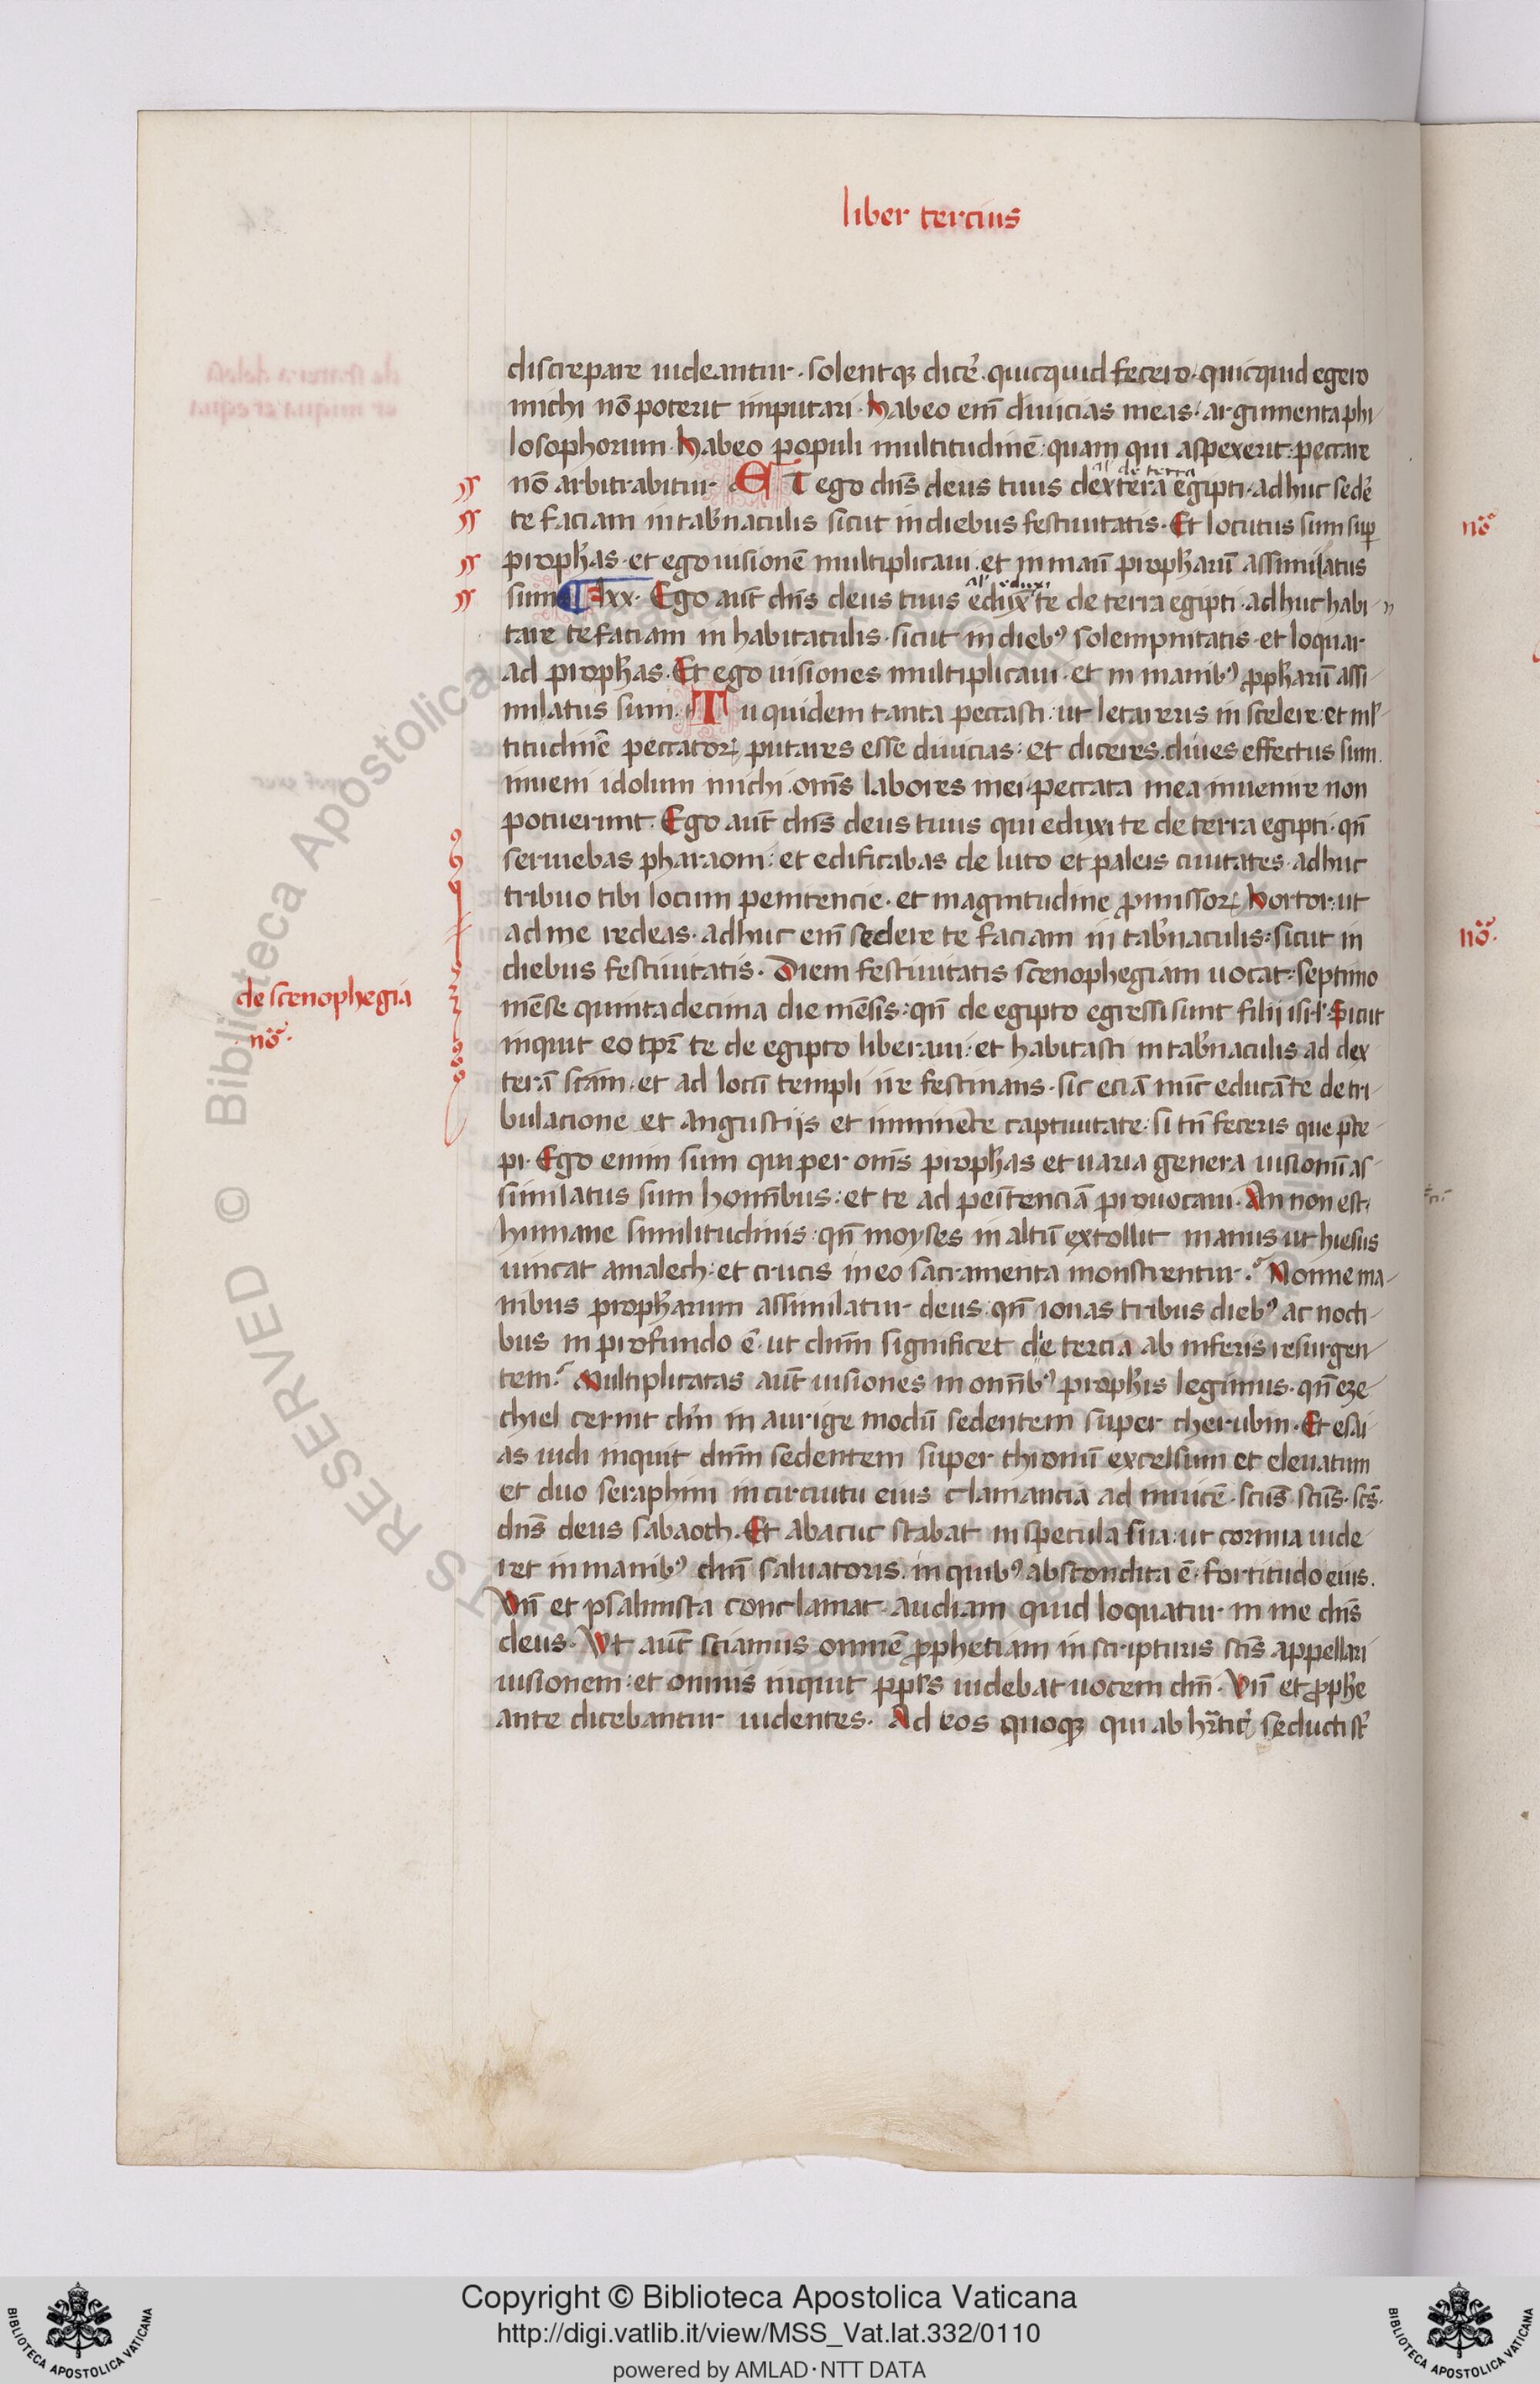 liber tercius
discrepare uideantur. solentqꝫ dicẽ. quicquid fecero. quicquid egero
michi nõ poterit imputari. habeo em̃ diuicias meas. argumenta phi
losophorum. habeo populi multitudinẽ: quam qui aspexerit: peccare
al' de terra
nõ arbitrabitur. ET ego dñs deus tuus dextera egipti. adhuc sedẽ
te faciam in tab̃naculis sicut in diebus festiuitatis. Et locutus sum sup̱
proph̃as. et ego uisionẽ multiplicaui. et in manũ proph̃arũ assimilatus
al' eduxi
sum ¶ lxx. Ego aut̃ dñs deus tuus edux̃ te de terra egipti. adhuc habi
tare te faciam in habitaculis. sicut in dieb⁹ solempnitatis. et loquar
ad proph̃as. Et ego uisiones multiplicaui. et in manib⁹ ꝓph̃arũ assi
milatus sum. Tu quidem tanta peccasti: ut letareris in scelere: et ml'
titudinẽ peccatoꝝ putares esse diuicias: et diceres. diues effectus sum.
inueni idolum michi. om̃s labores mei. peccata mea inuenire non
potuerunt. Ego aut̃ dñs deus tuus qui eduxi te de terra egipti. qñ
seruiebas pharaoni: et edificabas de luto et paleis ciuitates. adhuc
tribuo tibi locum penitencie. et magnitudine ꝓmissoꝝ hortor: ut
ad me redeas. adhuc em̃ sedere te faciam in tab̃naculis: sicut in
diebus festiuitatis. Diem festiuitatis scenophegiam uocat: septimo
de scenophegia
nõ.
mẽse quintadecima die mẽsis: qñ de egipto egressi sunt filii isrl'. Sicut
inquit eo tp̃r te de egipto liberaui: et habitasti in tab̃naculis ad dex
terã sc̃am. et ad locũ templi ire festinans. sic eciã nũc educã te de tri
bulacione et angustijs et imminẽte captiuitate: si tñ feceris que p̃ce
pi. Ego enim sum qui per om̃s proph̃as et uaria genera uisionũ as
similatus sum hom̃ibus: et te ad peñtenciã prouocaui. An non est
humane similitudinis: qñ moyses in altũ extollit manus ut hiesus
uincat amalech: et crucis in eo sacramenta monstrentur? Nonne ma
nibus proph̃arum assimilatur deus: qñ ionas tribus dieb⁹ ac nocti
bus in profundo ẽ. ut dñm significet die tercia ab inferis resurgen
tem? Multiplicatas aut̃ uisiones in omĩb⁹ proph̃is legimus. qñ eze
chiel cernit dñm in aurige modũ sedentem super cherubin. Et esai
as uidi inquit dñm sedentem super thronũ excelsum et eleuatum
et duo seraphim in circuitu eius clamancia ad inuicẽ. scũs. scũs. scs̃.
dñs deus sabaoth. Et abacuc stabat in specula sua: ut cornua uide
ret in manib⁹ dñi saluatoris. in quib⁹ abscondita ẽ. fortitudo eius.
Vñ et psalmista conclamat. audiam quid loquatur in me dñs
deus. Vt aut̃ sciamus omnẽ ꝓphetiam in scripturis scĩs appellari
uisionem: et omnis inquit ppl's uidebat uocem dñi. Vñ et ꝓph̃e
ante dicebantur uidentes. Ad eos quoqꝫ qui ab hr̃ticis seducti st̃
nõ
nõ.